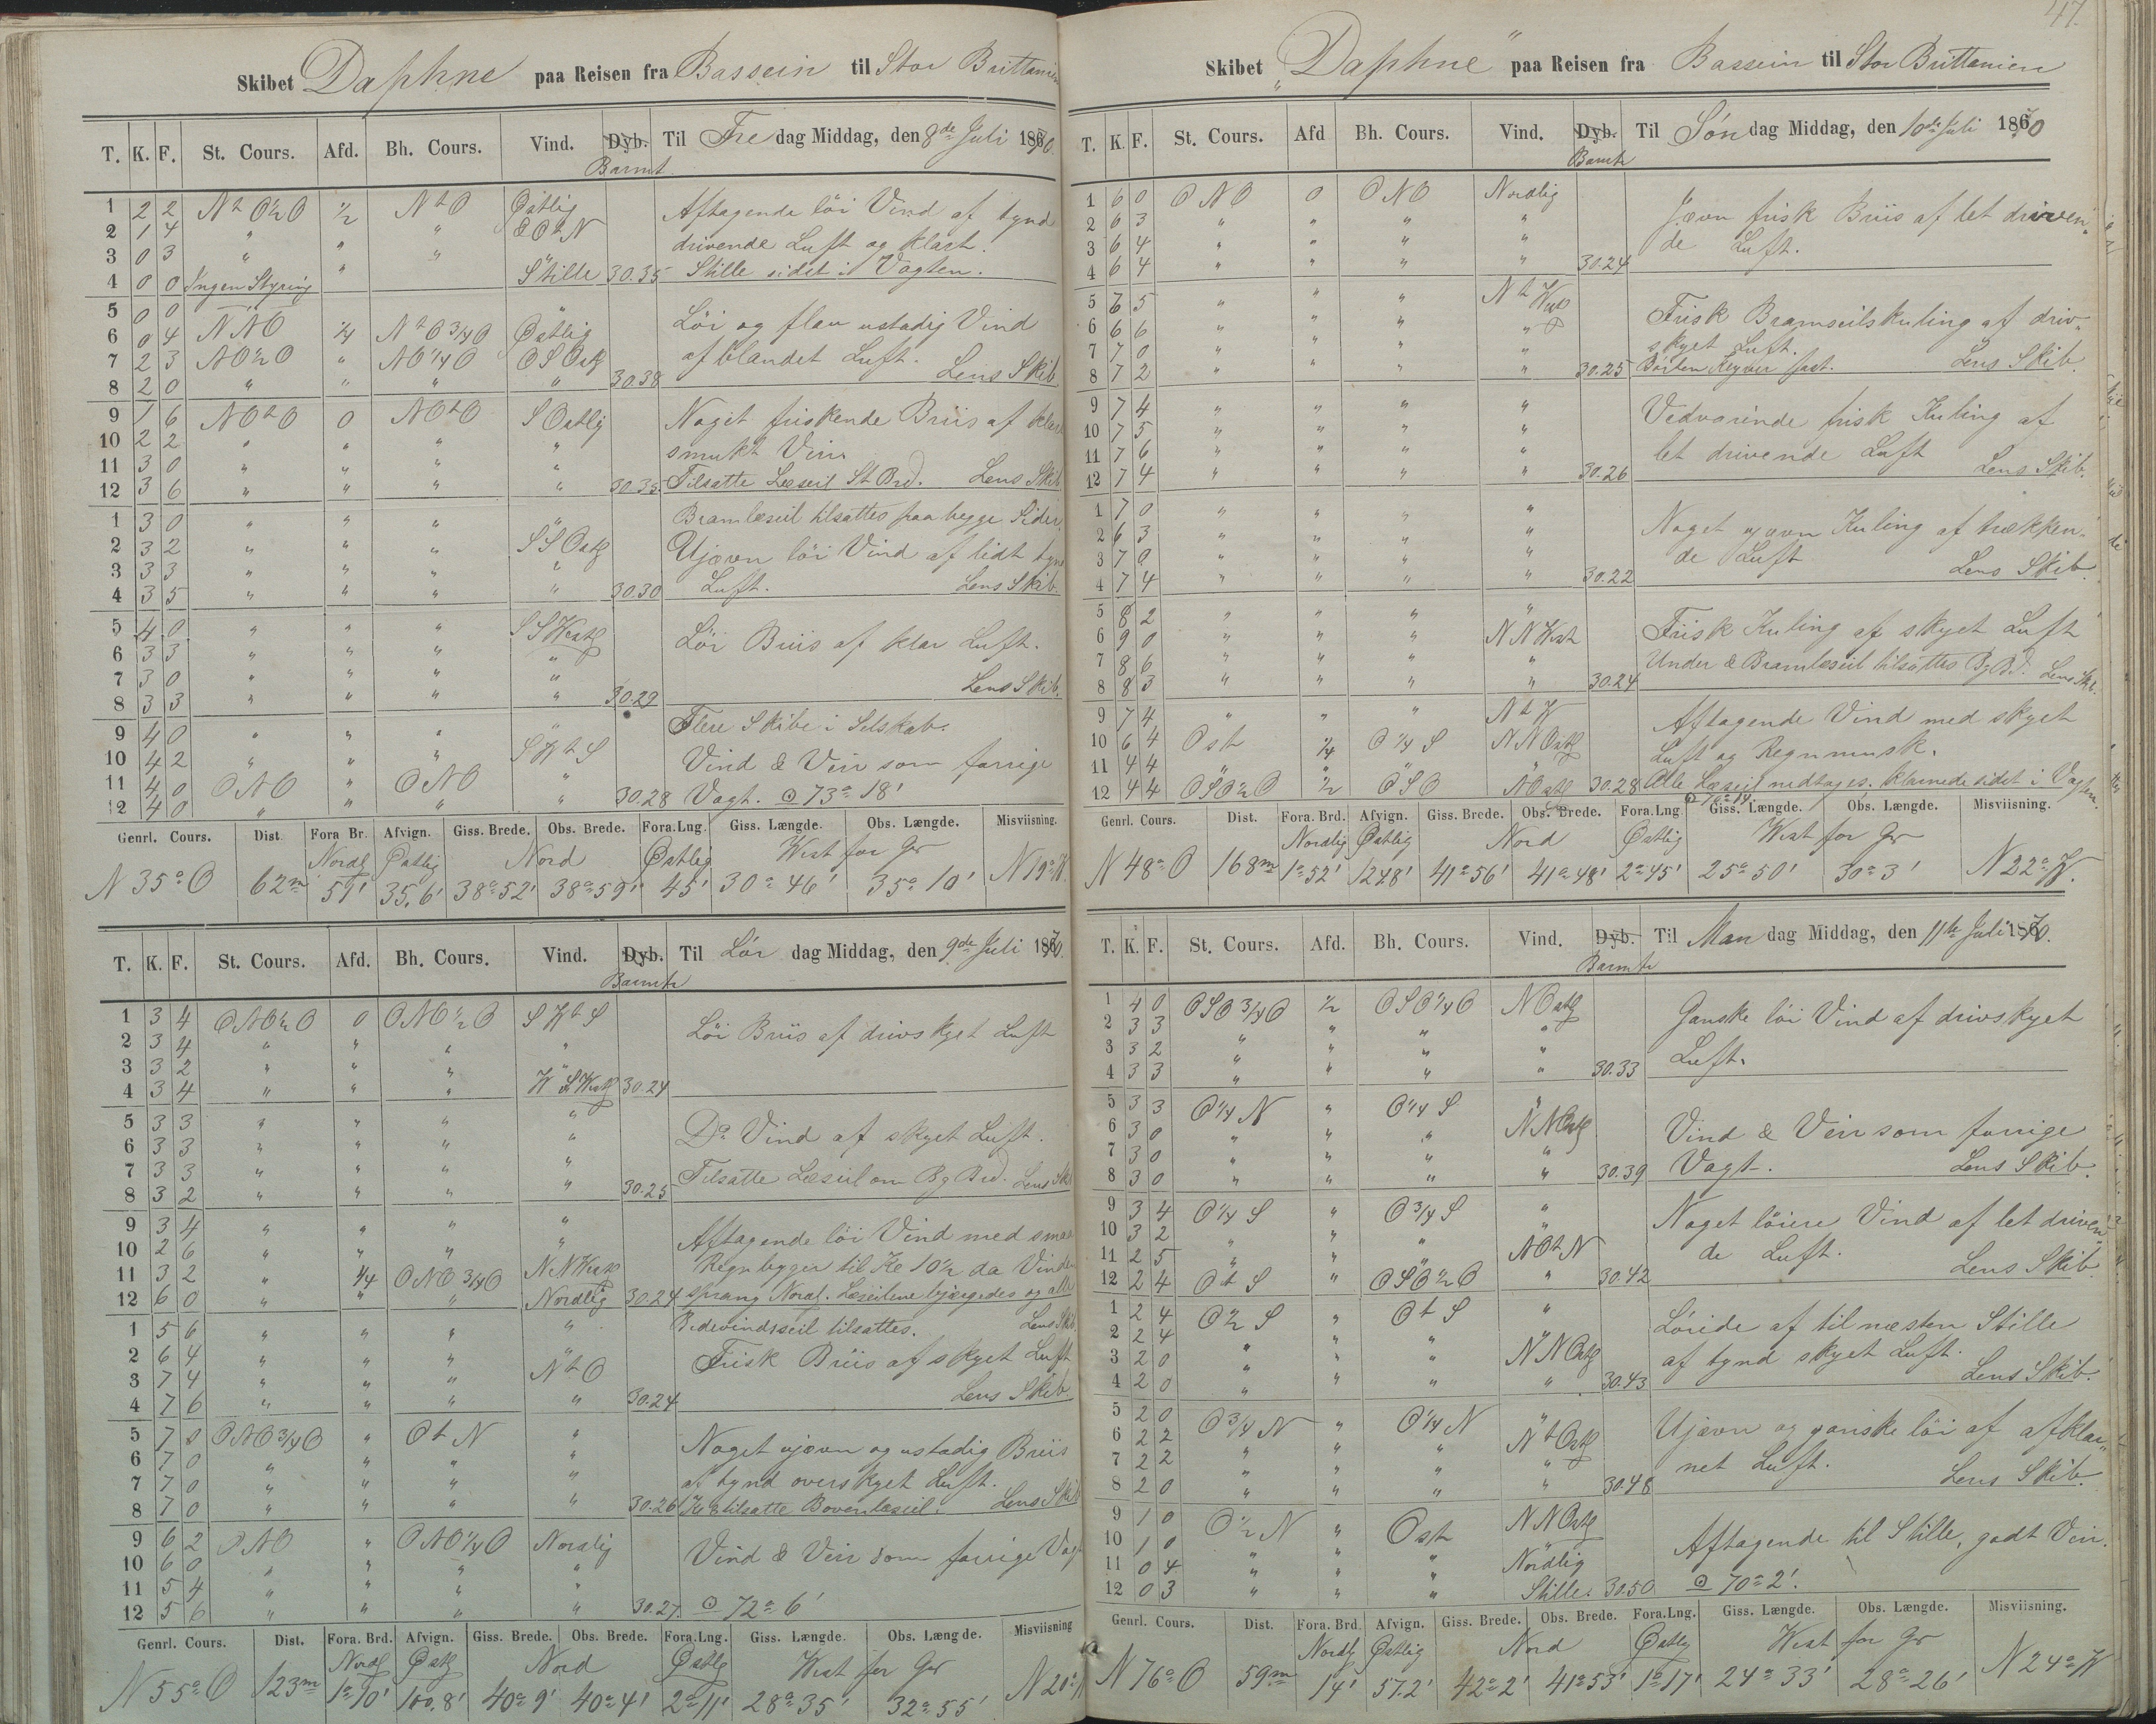 Skibet Daphne paa Reisen fra Bassein til Stor Brittanien
T. K. F. St. Cours. Afd. Bh. Cours. Vind. Dyb. Til Fredag Middag, den 8de Juli 1870.
Barmt
1 2 2 Nt O½O ½ NtO Østlig Aftagende löi Vind af tynd
2 1 4 " " " OtN drivende Luft og klart.
3 0 3 " " " "
4 0 0 Ingen Styring " Stille 30.35 Stille sidst i Vagten.
5 0 0 "
6 0 4 NNO ¼ NtO¾O Østlig Löi og flau ustadig Vind
7 2 3 NO½O " NO¼O OSOstl af blandet Luft. Lens Skib
8 2 0 " " " " 30.38
9 1 6 NOtO 0 NOtO SOstlig Noget friskende Briis af klart
10 2 2 " " " " smukt Veir.
11 3 0 " " " "
12 3 6 " " " " 30.35 Tilsatte Læseil St Brd. Lens Skib
1 3 0 " " " " Bramlæseil tilsattes paa begge Sider.
2 3 2 " " " SSOstl Ujævn löi Vind af lidt tynd
3 3 3 " " " "
4 3 5 " " " " 30.30 Luft. Lens Skib.
5 4 0 " " " SSWestl Löi Briis af klar Luft.
6 3 3 " " " "
7 3 0 " " " "
8 3 3 " " " " 30.29 Lens Skib.
9 4 0 " " " " Flere Skibe i Selskab.
10 4 2 " " " SWtS Vind & Veir som forrige
11 4 0 ONO " ONO "
12 4 0 " " " 30.28 Vagt. ⊙ 73° 18'
Genrl. Cours. Dist. Fora Br. Afvign. Giss. Brede. Obs. Brede. Fora.Lng. Giss. Længde. Obs. Længde. Misviisning.
Nordl Østlig Nord Østlig West for Gr
N 35° O 62m 51' 35,6' 38° 52' 38° 59' 45' 30° 46' 35° 10' N 19° W.
T. K. F. St. Cours. Afd. Bh. Cours. Vind. Dyb. Til Lör dag Middag, den 9de Juli 1870.
Barmtr
1 3 4 ONO½O 0 ONO½O SWtS Löi Briis af drivskyet Luft
2 3 4 " " " "
3 3 2 " " " "
4 3 4 " " " WSWestl 30.24
5 3 3 " " " "
6 3 3 " " " " Do Vind af skyet Luft.
7 3 3 " " " "
8 3 2 " " " " 30.25 Tilsatte Læseil om Bg Brd. Lens Skib
9 3 4 " " " " Aftagende löi Vind med smaa
10 2 6 " " " " Regnbygger til Kl 10½ da Vinden
11 3 2 " ¼ ONO¾O NNWestl
12 6 0 " " " Nordlig 30.24 sprang Nordl. Læseilene bjærgedes og alle
1 5 6 " " " " Bidevindsseil tilsattes. Lens Skib
2 6 4 " " " " Frisk Briis af skyet Luft
3 7 4 " " " NtO
4 7 6 " " " " 30.24 Lens Skib.
5 7 0 ONO¾O " OtN " Noget ujævn og ustadig Briis
6 7 0 " " " " af tynd overskyet Luft.
7 7 0 " " " "
8 7 0 " " " " 30.26 Kl 8 tilsatte Bovenlæseil. Lens Skib
9 6 2 ONO " ONO¼O Nordlig Vind & Veir som forrige Vagt
10 6 0 " " " "
11 5 4 " " " "
12 5 6 " " " " 30.27. ⊙ 72° 6'
Genrl. Cours. Dist. Fora. Brd. Afvign. Giss. Brede. Obs. Brede. Fora.Lng. Giss. Længde. Obs. Længde. Misviisning
Nordl Østl Nord Østlg West for Gr
N 55° O 123m 1° 10' 100,8' 40° 9' 40° 4' 2° 11' 28° 35' 32° 55' N 20° W
47.
Skibet „Daphne" paa Reisen fra Bassein til Stor Brittanien
T. K. F. St. Cours. Afd Bh. Cours. Vind. Dyb. Til Söndag Middag, den 10de Juli 1870
Barmtr
1 6 0 ONO 0 ONO Nordlig Jævn frisk Briis af let driven-
2 6 3 " " " " de Luft.
3 6 4 " " " "
4 6 4 " " " " 30.24
5 6 5 " " " NtWestl Frisk Bramseilskuling af driv-
6 6 6 " " " " skyet Luft.
7 7 0 " " " "
8 7 2 " " " " 30.25 Lens Skib.
9 7 4 " " " " Vedvarende frisk Kuling af
10 7 5 " " " " let drivende Luft
11 7 6 " " " "
12 7 4 " " " " 30.26 Lens Skib.
1 7 0 " " " " Noget ujævn Kuling af trækken-
2 6 3 " " " " de Luft
3 7 0 " " " "
4 7 4 " " " " 30.22 Lens Skib.
5 8 2 " " " " Frisk Kuling af skyet Luft
6 9 0 " " " NNWest
7 8 6 " " " " Under & Bramlæseil tilsattes Bg Bd. Lens Skib.
8 8 3 " " " " 30.24
9 7 4 " " " NtW Aftagende Vind med skyet
10 6 4 Ost ¼ O¼S NNOstl Luft og Regnmusk.
11 4 4 " " " "
12 4 4 OSO½O ½ OSO NOstl 30.28 Alle Læseil nedtages. klarnede sidst i Vagten.
⊙ 70° 14'
Genrl. Cours. Dist. Fora. Brd. Afvign. Giss. Brede. Obs. Brede. Fora. Lng Giss. Længde. Obs. Længde. Misviisning.
Nordlig Østlig Nord Østlig West for Gr
N 48° O 168m 1° 52' 124,8' 41° 56' 41° 48' 2° 45' 25° 50' 30° 3' N 22° W.
T. K. F. St. Cours. Afd. Bh. Cours. Vind. Dyb. Til Man dag Middag, den 11te Juli 1870.
Barmtr
1 4 0 OSO¾O ½ OSO¼O NOstl Ganske löi Vind af drivskyet
2 3 3 " " " " Luft.
3 3 2 " " " "
4 3 3 " " " " 30.33
5 3 3 O¼N " O¼S "
6 3 0 " " " NNOstl Vind & Veir som forrige
7 3 0 " " " "
8 3 0 " " " " 30.39 Vagt. Lens Skib.
9 3 4 O¼S " O¾S " Noget löiere Vind af let driven-
10 3 2 " " " " de Luft.
11 2 5 " " " NOtN
12 2 4 OtS " OSO½O " 30.42 Lens Skib.
1 2 4 O½S " OtS " Löiede af til næsten Stille
2 2 4 " " " " af tynd skyet Luft.
3 2 0 " " " NNOstl
4 2 0 " " " " 30.43 Lens Skib.
5 2 0 O¾N " O¼N " Ujævn og ganske löi af afklar-
6 2 2 " " " NtOstl net Luft.
7 2 2 " " " "
8 2 0 " " " " 30.48 Lens Skib.
9 1 0 O½N " Ost NNOstl Aftagende til Stille, godt Veir.
10 1 0 " " " "
11 0 4 " " " Nordlig
12 0 3 " " " Stille. 30.50 ⊙ 70° 2'.
Genrl. Cours. Dist. Fora. Brd. Afvign. Giss. Brede. Obs. Brede. Fora.Lng. Giss. Længde. Obs. Længde. Misviisning.
Nordlg Østlig Nord Østlg West for Gr
N 76° O 59m 14' 57.2' 42° 2' 41° 53' 1° 17' 24° 33' 28° 26' N 24° W